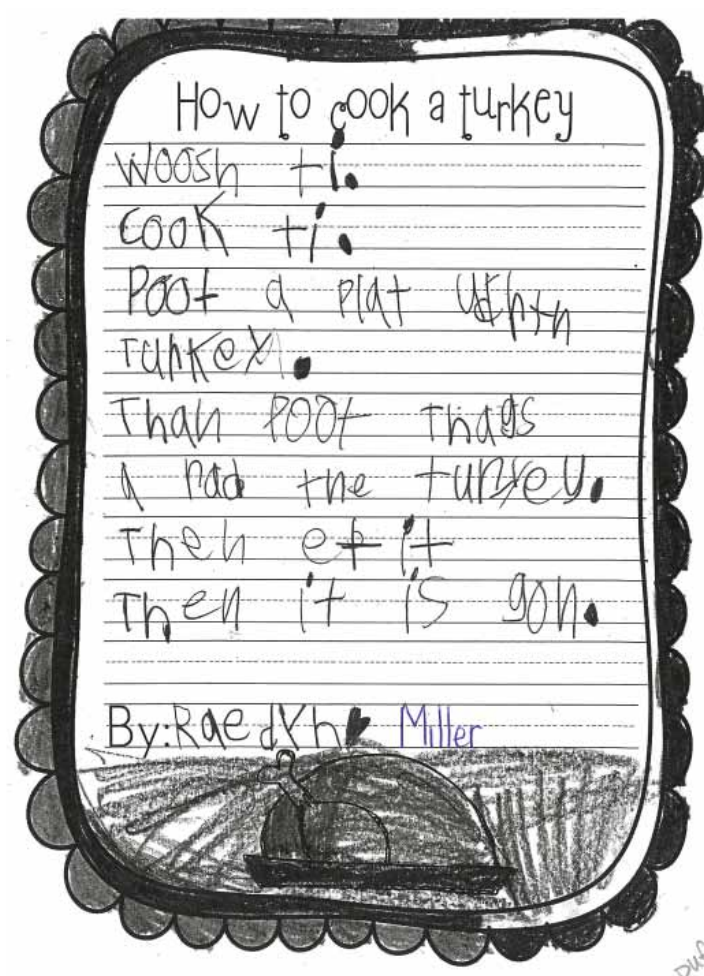 How to cook a turkey
Woosh ti.
Cook ti.
Poot a plat
Turkey.
Than Poot Thags
a rad the turkey.
Then et it
Then it is gon.
By: Raedyn Miller